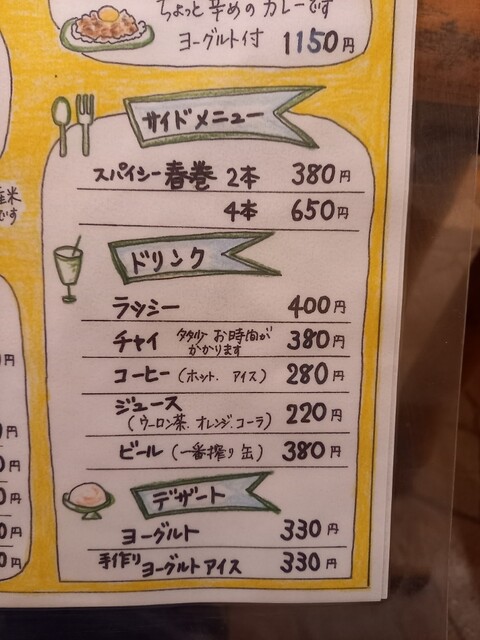 ちょっと辛めのカレーです
ヨーグルト付 1150円
サイドメニュー
スパイシー春巻 2本 380円
4本 650円
ドリンク
ラッシー 400円
チャイ 多少お時間がかかります 380円
コーヒー (ホット. アイス) 280円
ジュース
(ウーロン茶. オレンジ. コーラ) 220円
ビール (一番搾り 缶) 380円
デザート
ヨーグルト 330円
手作りヨーグルトアイス 330円